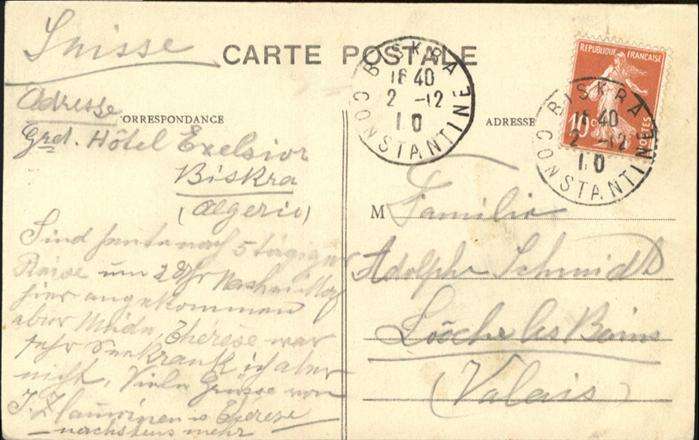 Suisse
CARTE POSTALE
Adresse
CORRESPONDANCE
Grd. Hôtel Exelsior
Biskra
(Algerie)
Sind heute nach 5 tägiger
Reise um 2 Uhr Nachmittag
hier angekommen
aber Müde, Therese war
sehr Seekrank ich aber
nicht, Viele Grüsse von
Therese
nächstens mehr
BISKRA
16 40
2 -12
10
CONSTANTINE
REPUBLIQUE FRANÇAISE
10
POSTES
BISKRA
16 40
2 -12
10
CONSTANTINE
ADRESSE
M Familie
Adolphe Schmidt
Lööche les Bains
(Valais)